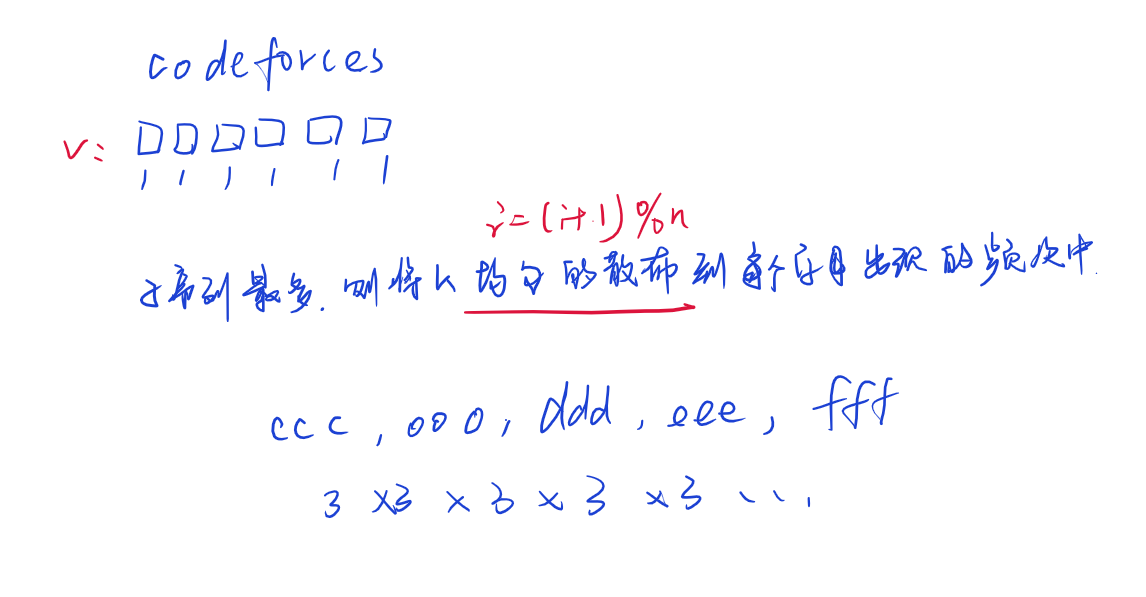 codeforces
v:
1 1 1 1 1 1
i=(i+1)%n
子序列最多.则将k均匀的散布到每个字母出现的频次中.
ccc,ooo,ddd,eee,fff
3×3×3×3×3...